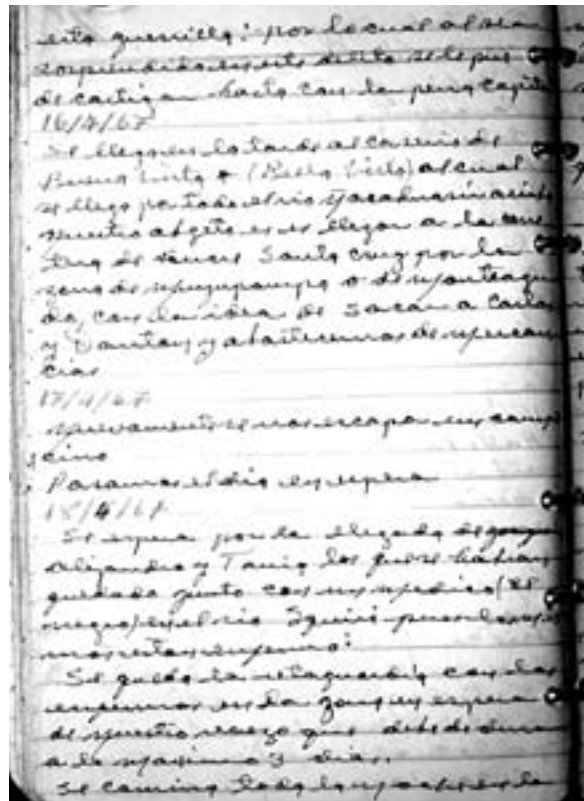 esta guerrilla; por lo cual al ser
sorprendido en este delito se le pue
de castigar hasta con la pena capital
16/4/67
Se llega en la tarde al caserio de
Buena Vista o (Bella Vista) al cual
se llega por todo el rio
nuestro objeto es llegar a la carre
tera de Sucre Santa Cruz por la
zona de Muyupampa o de Monteagu
do, con la idea de sacar a Carlos
y Dantón y abastecernos de mercan
cias
17/4/67
Nuevamente se nos escapa un campe
cino
Pasamos el dia en espera
18/4/67
Se espera por la llegada de
Alejandro y Tania los que se habian
quedado junto con un medico (El
negro) en el rio Iquiri pues los
mos estan enfermos:
Se queda la retaguardia con los
enfermos en la zona en espera
de nuestro regreso que debe de durar
a lo maximo 3 dias.
Se camina toda la noche en la